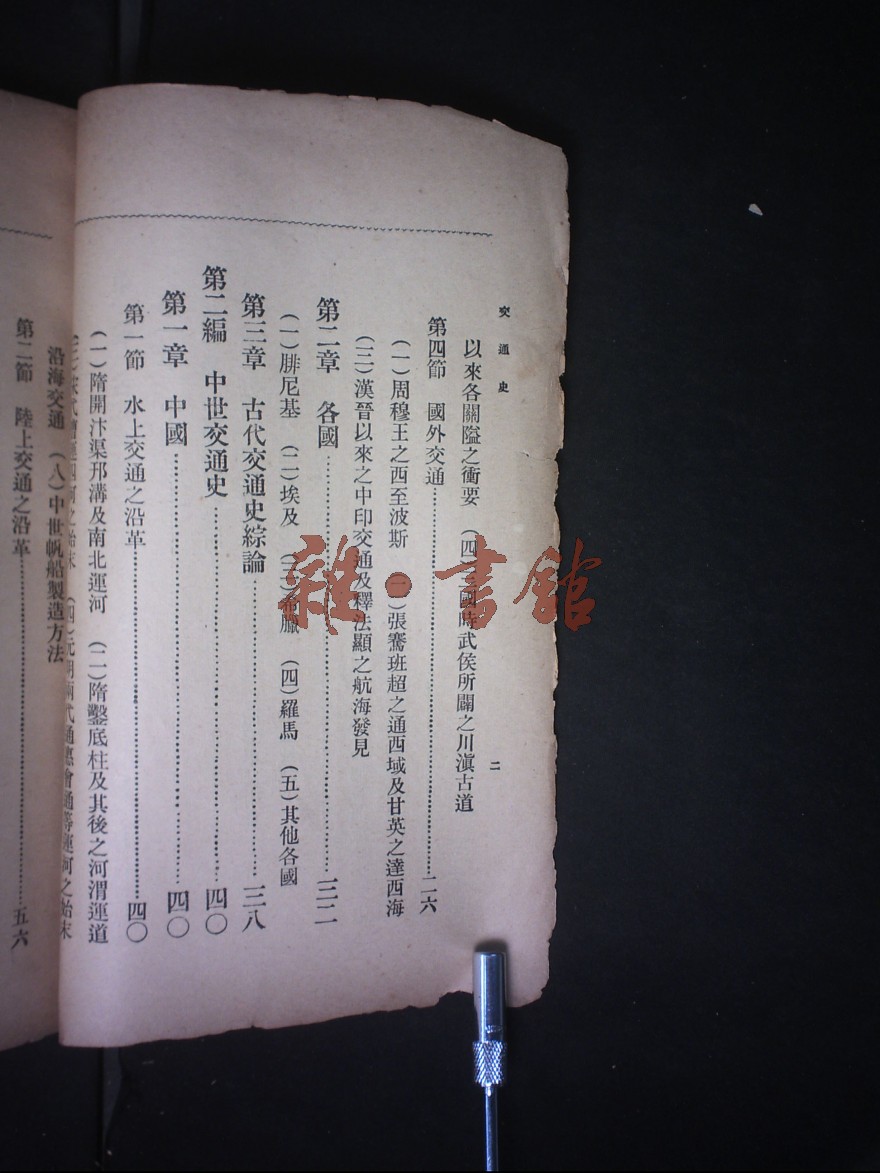 交通史
二
以來各關隘之衝要 (四)三國時武侯所闢之川滇古道
第四節 國外交通……二六
(一)周穆王之西至波斯 (二)張騫班超之通西域及甘英之達西海
(三)漢晉以來之中印交通及釋法顯之航海發見
第二章 各國……三二
(一)腓尼基 (二)埃及 (三)希臘 (四)羅馬 (五)其他各國
第三章 古代交通史綜論……三八
第二編 中世交通史……四〇
第一章 中國……四〇
第一節 水上交通之沿革……四〇
(一)隋開汴渠邗溝及南北運河 (二)隋鑿底柱及其後之河渭運道
(三)宋代漕運四河之始末 (四)元明兩代通惠會通等運河之始末
沿海交通 (八)中世帆船製造方法
第二節 陸上交通之沿革……五六
雜·書館